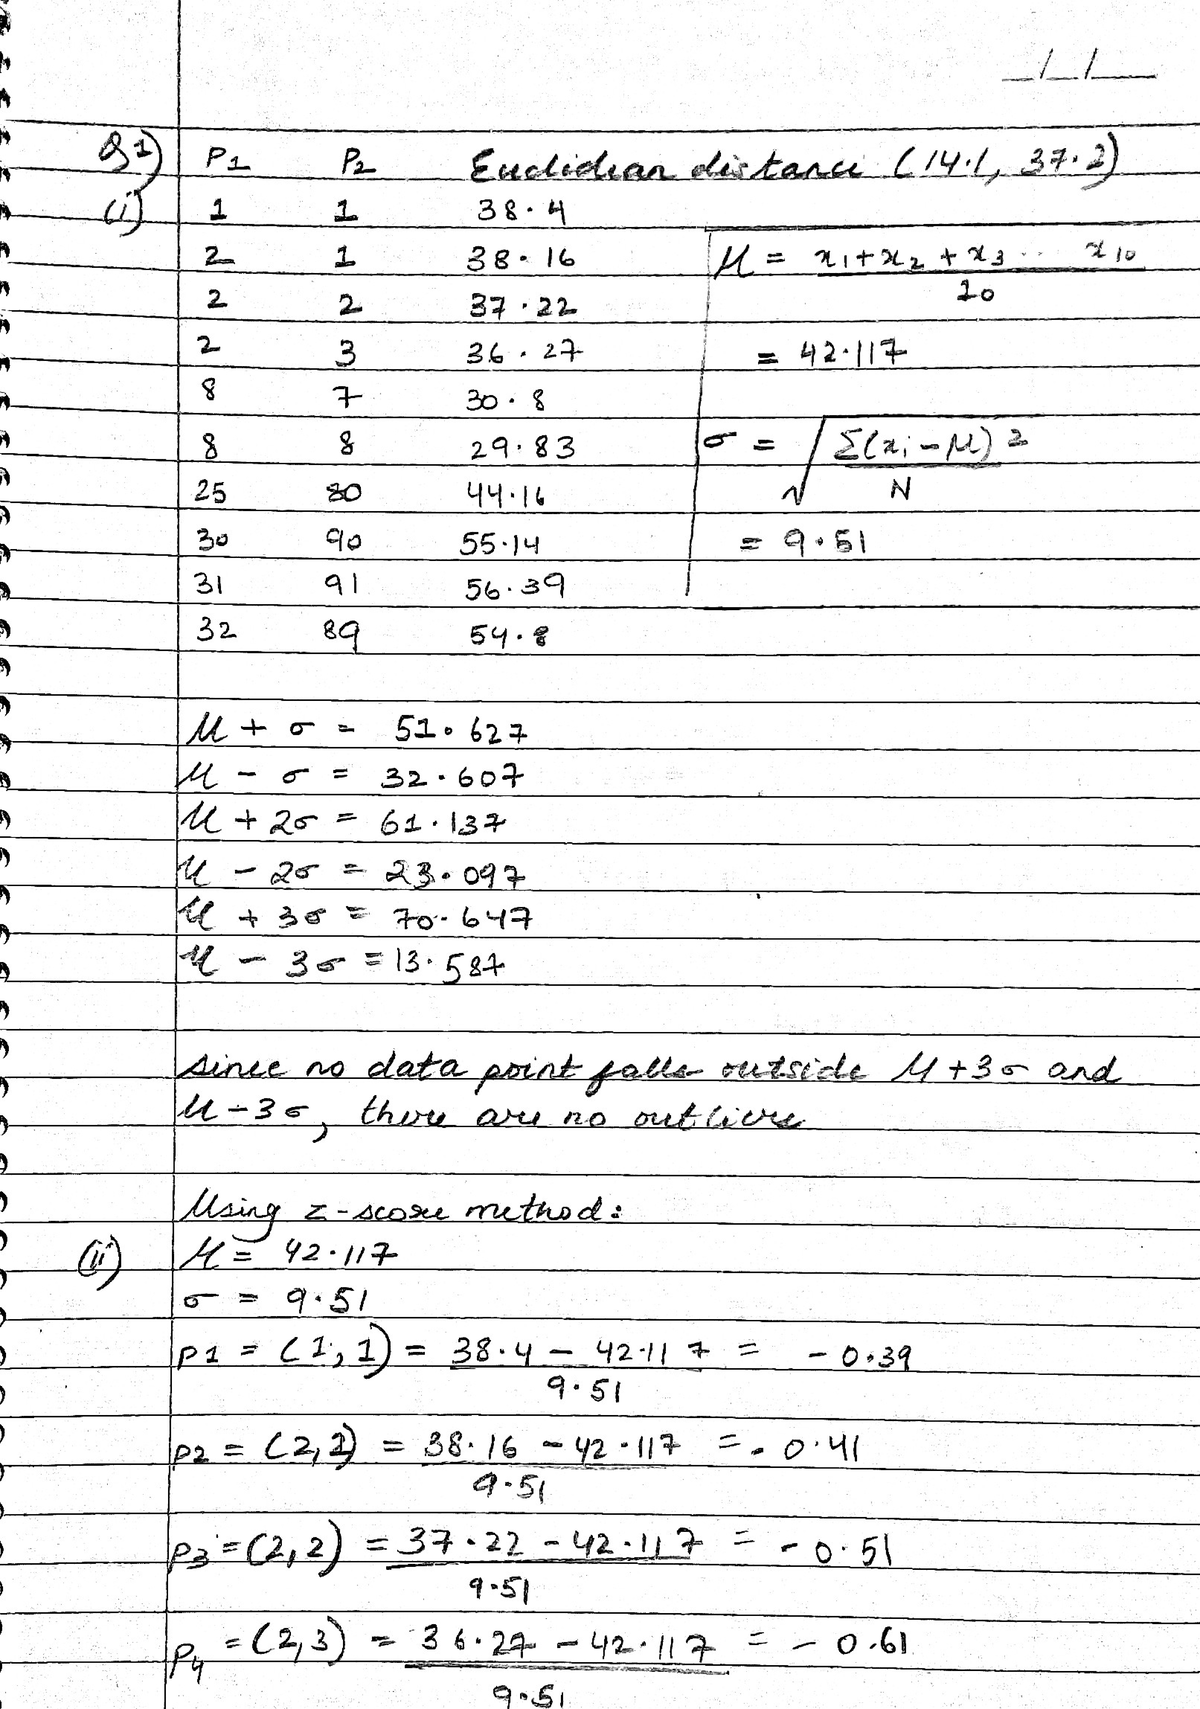 __/__/____
Q1) P1 P2 Euclidian distance (14.1, 37.2)
(i) 1 1 38.4
2 1 38.16
2 2 37.22
2 3 36.27
8 7 30.8
8 8 29.83
25 80 44.16
30 90 55.14
31 91 56.39
32 89 54.8
μ = x1+x2+x3 .. x10
10
= 42.117
σ = √ Σ(xi-μ)2
N
= 9.51
μ + σ = 51.627
μ - σ = 32.607
μ + 2σ = 61.137
μ - 2σ = 23.097
μ + 3σ = 70.647
μ - 3σ = 13.587
since no data point falls outside μ+3σ and
μ-3σ, there are no outliers
Using z-score method:
(ii) μ = 42.117
σ = 9.51
P1 = (1,1) = 38.4 - 42.117 = -0.39
9.51
P2 = (2,1) = 38.16 - 42.117 = -0.41
9.51
P3 = (2,2) = 37.22 - 42.117 = -0.51
9.51
P4 = (2,3) = 36.27 - 42.117 = -0.61
9.51